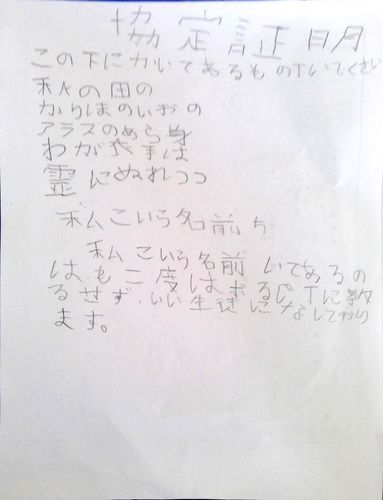 協定証明
この下にかいてあるものTいてくさい
秋の田の
かりほのいおの
アラスのあら身
わが衣手は
霊にぬれつつ
私こいら名前ち
私こいら名前いてあるの
はも二度は
るせず、いい生徒になしており
ます。